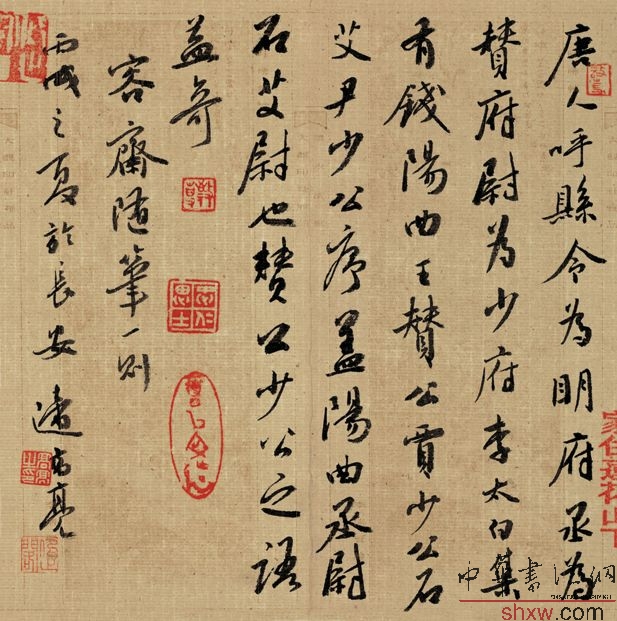 唐人呼縣令為明府丞為
贊府尉為少府李太白集
有錢陽曲王贊公賈少公石
艾尹少公序蓋陽曲丞尉
石艾尉也贊公少公之語
益奇
容齋隨筆一則
丙戌之夏於長安遆高亮
shxw.com